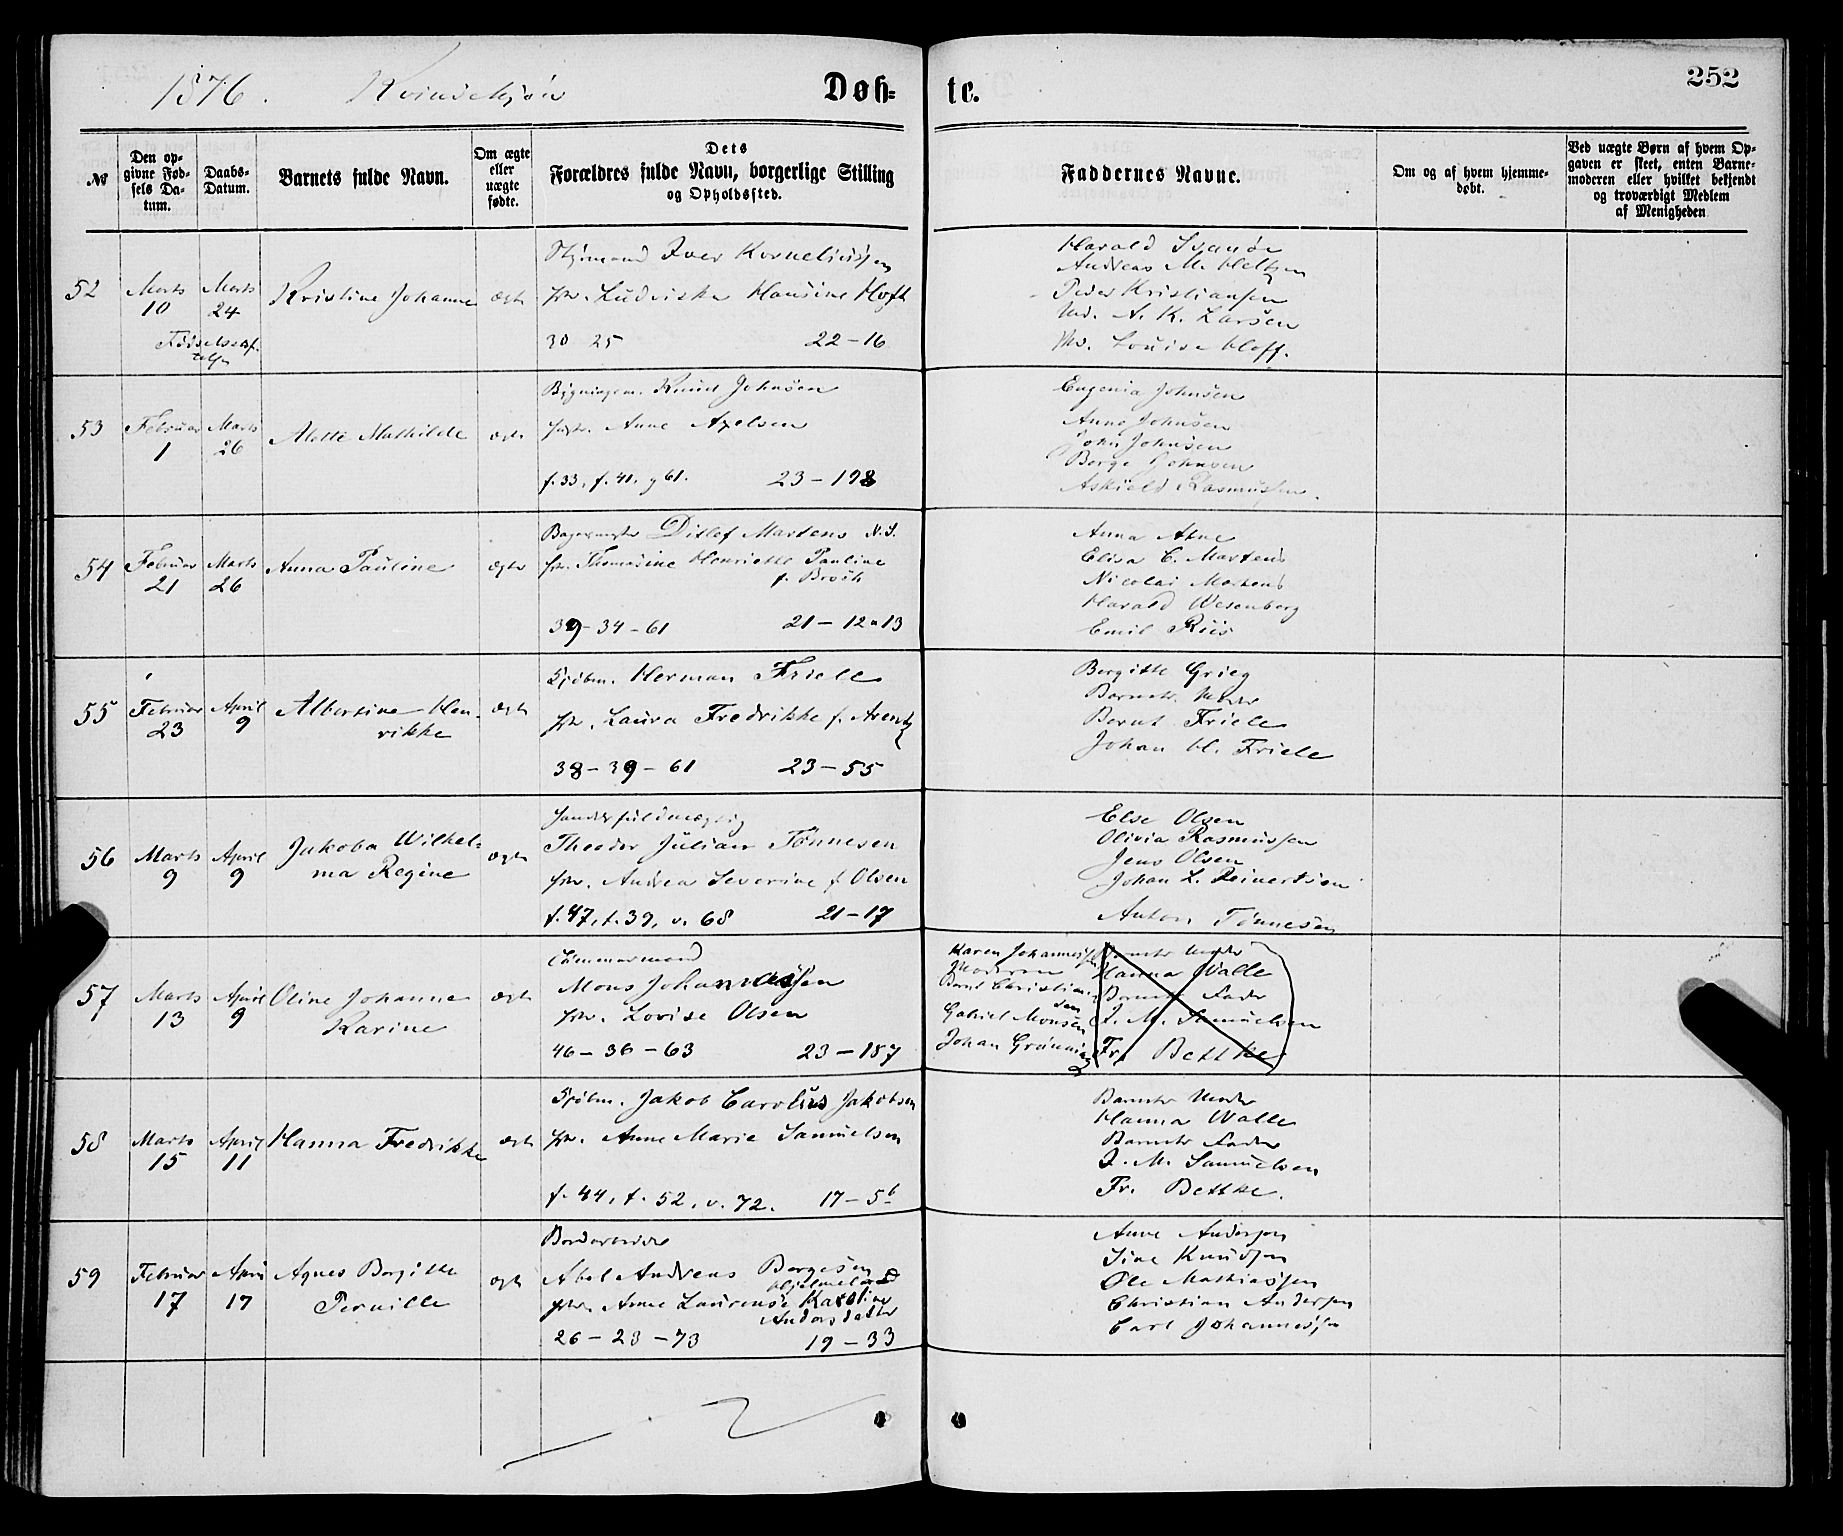 1876. Kvindekjøn
Døb=
te.
252
№
Den op-
givne Fød-
sels Da-
tum.
Daabs-
Datum.
Barnets fulde Navn.
Om ægte
eller
uægte
fødte.
Dets
Forældres fulde Navn, borgerlige Stilling
og Opholdssted.
Faddernes Navne.
Om og af hvem hjemme-
døbt.
Ved uægte Børn af hvem Op-
gaven er skeet, enten Barne-
moderen eller hvilket bekjendt
og troværdigt Medlem
af Menigheden
52
Marts
10
Marts
24
Kristine Johanne
ægte
Styrmand Iver Korneliussen
Ludviske Hansine Hoff
30 25 22-16
Harald Svanøe
Andreas M. Heltzen
Peder Kristiansen
Md. A. K. Larsen
Louise Hoff.
53
Februar
1
Marts
26
Alette Mathilde
ægte
Knud Johnsen
Anne Axelsen
f.33, f.41, g 61. 23-198
Eugenia Johnsen
Anne Johnsen
John Johnsen
Børge Johnsen
Askield Rasmussen.
54
Februar
21
Marts
26
Anna Pauline
ægte
Bagermester Ditlef Martens N.S.
Thomasine Henriette Pauline
f. Broch
39-34-61 21-12a13
Anna
Elisa C. Martens
Nicolai Martens
Harald Wesenberg
Emil Riis
55
Februar
23
April
9
Albertine Hen-
rikke
ægte
Kjøbm. Herman Friele
Laura Fredrikke f. Arentz
38-39-61 23-55
Bergitte Grieg
Barnets Moder
Bernt Friele
Johan H. Friele
56
Marts
9
April
9
Jakoba Wilhel-
ma Regine
ægte
Handelsfuldmægtig
Theodor Julian Tønnesen
Andrea Severine f. Olsen
f.47, f.39, v. 68 21-17
Else Olsen
Olivia Rasmussen
Jens Olsen
Johan L. Reinertsen
Anton Tønnesen
57
Marts
13
April
9
Oline Johanne
Karine
ægte
Tømmermand
Mons Johannessen
Lovise Olsen
46-36-63 23-187
Karen Johannessen
Moderen
Bernt Christian-
sen
Gabriel Monsen
Johan Grønning
Barnets Moder
Hanna Walle
Barnets Fader
J. M. Samuelsen
Fr. Bettke
58
Marts
15
April
11
Hanna Fredrikke
ægte
Kjøbm. Jakob Carolius Jakobsen
Anne Marie Samuelsen
f. 44, f. 52, v. 72. 17-5b
Barnets Moder
Hanna Walle
Barnets Fader
J. M. Samuelsen
Fr. Bettke.
59
Februar
17
April
17
Agnes Bergitte
Pernille
ægte
Bordarbeider
Abel Andreas Børgesen
Hjelmeland
Anne Laurense Karoline
Andersdatter
26-23-73 19-33
Anne Andersen
Sine Knudsen
Ole Mathiassen
Christian Andersen
Carl Johannessen